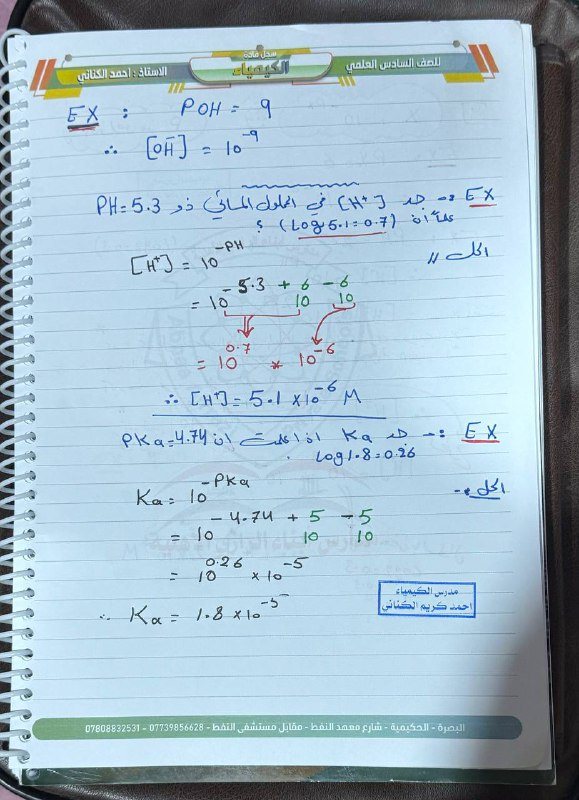 سجل مادة
للصف السادس العلمي
الكيمياء
الاستاذ : احمد الكناني
EX : POH = 9
∴ [OH⁻] = 10⁻⁹
EX :- جد [H⁺] في المحلول المائي ذو PH = 5.3
علماً أن (Log 5.1 = 0.7) ؟
الحل //
[H⁺] = 10^-PH
= 10^-5.3 + 6 - 6
10 10
= 10^0.7 * 10^-6
∴ [H⁺] = 5.1 × 10⁻⁶ M
EX :- جد Ka اذا علمت ان PKa = 4.74
Log 1.8 = 0.26
الحل :-
Ka = 10^-PKa
= 10^-4.74 + 5 - 5
10 10
= 10^0.26 × 10^-5
∴ Ka = 1.8 × 10⁻⁵
مدرس الكيمياء
احمد كريم الكناني
البصرة - الحكيمية - شارع معهد النفط - مقابل مستشفى النفط - 07739856628 - 07808832531